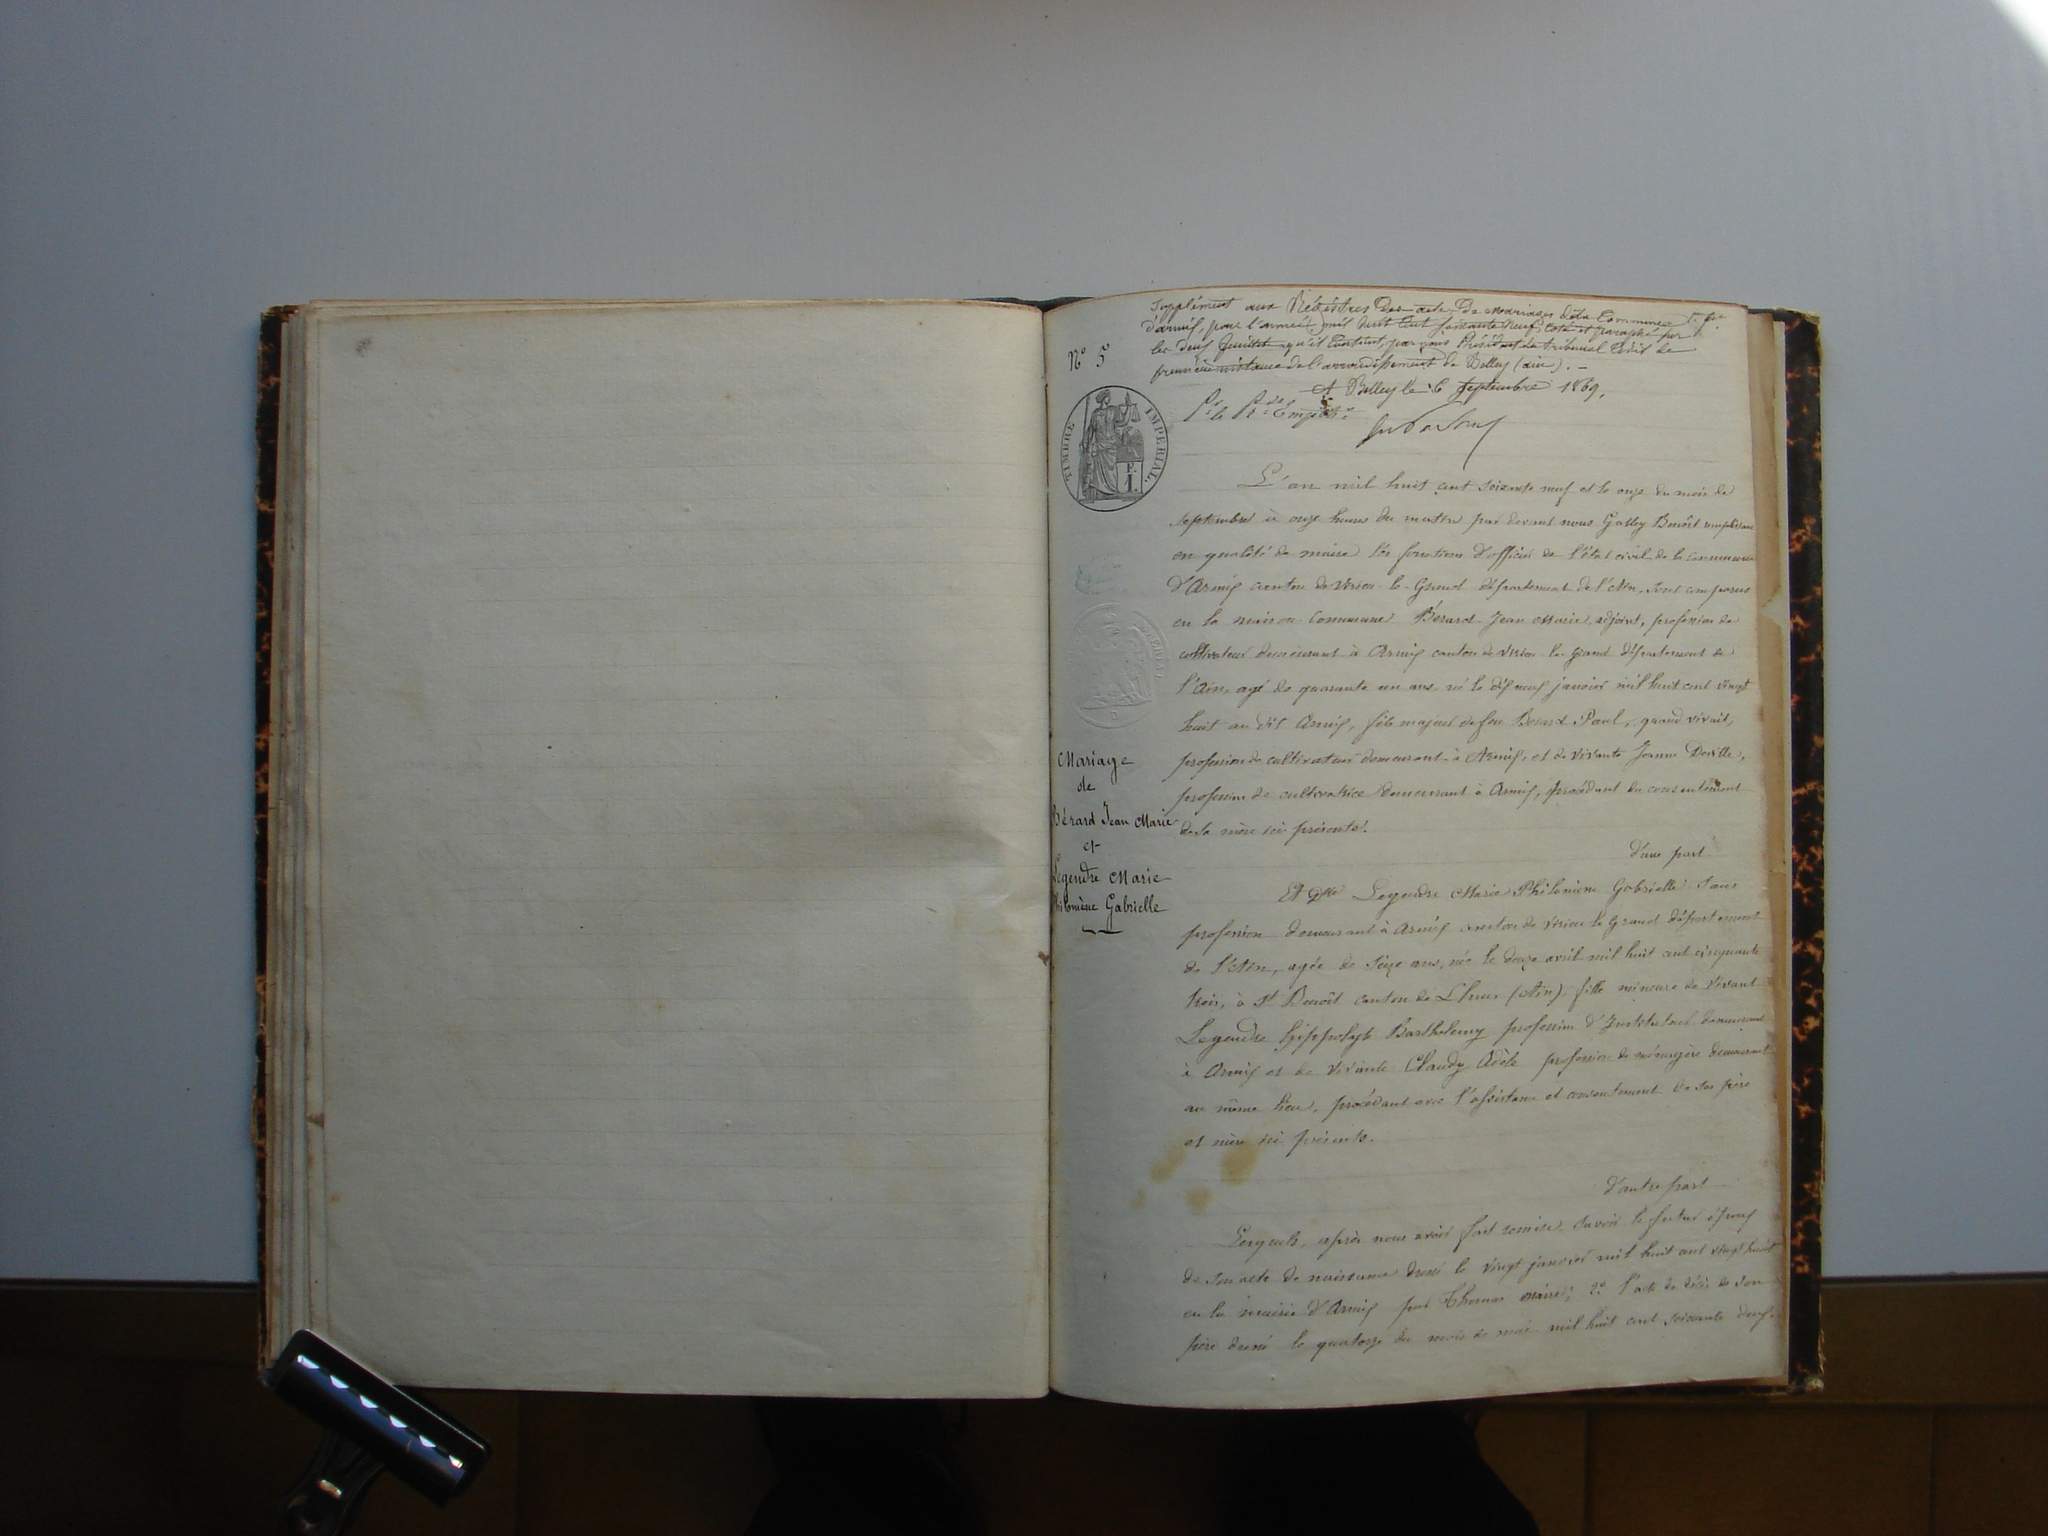 Supplément aux Régistres des acte de mariages de la Commune
d'armix, pour l'année mil huit cent soixante neuf, coté et paraphé par
les deux feuillets qu'il contient, par nous Président du tribunal Civil de
première instance de l'arrondissement de Belley (ain). -
A Belley le 6 Septembre 1869.
Pr le Pt Empêché
N° 5
TIMBRE IMPERIAL.
F.
1.
L'an mil huit cent soixante neuf et le onze du mois de
septembre à onze heures du matin par devant nous Galley Benoît remplissant
en qualité de maire les fonctions d'officier de l'état civil de la commune
d'Armix canton de Virieu-le-Grand département de l'Ain, sont comparus
en la maison commune Bérard Jean Marie, adjoint, profession de
cultivateur demeurant à Armix canton de Virieu-le-Grand département de
l'Ain, agé de quarante un ans, né le dix neuf janvier mil huit cent vingt
huit au dit Armix, fils majeur de feu Berard Paul, quand vivait,
profession de cultivateur demeurant à Armix, et de vivante Jeanne Deville,
profession de cultivatrice demeurant à Armix, procédant du consentement
de sa mère ici présente.
d'une part
Mariage
de
Bérard Jean Marie
et
Legendre Marie
Philomène Gabrielle
Et Dlle Legendre Marie Philomène Gabrielle sans
profession demeurant à Armix canton de Virieu le Grand département
de l'Ain, agée de seize ans, née le douze avril mil huit cent cinquante
trois, à St Benoît canton de Lhuis (Ain), fille mineure de vivant
Legendre Hippolyte Barthelemy profession d'Instituteur demeurant
à Armix et de vivante Claudy Adèle profession de ménagère demeurant
au même lieu, procédant avec l'assistance et consentement de ses père
et mère ici présents.
d'autre part
Lesquels, après nous avoir fait remise savoir le futur époux
de son acte de naissance dressé le vingt janvier mil huit cent vingt huit
en la mairie d'Armix par Thomas maire; 2° l'acte de décès de son
père dressé le quatorze du mois de mai mil huit cent soixante deux.